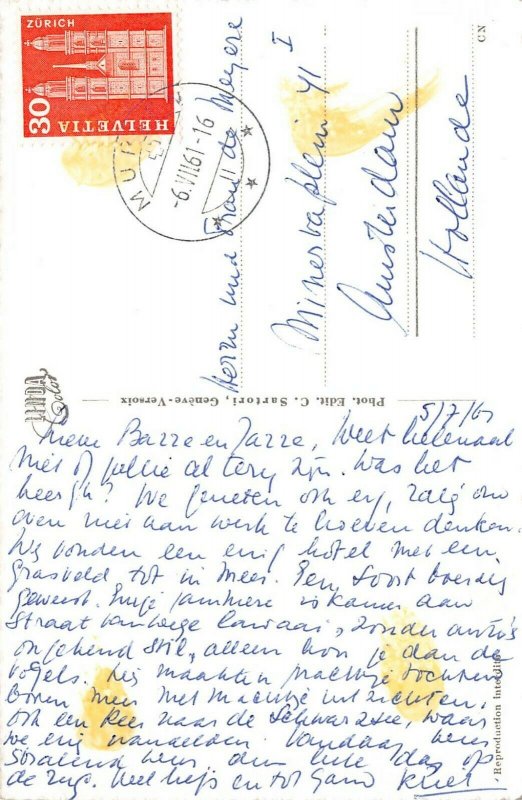 ZÜRICH
30
HELVETIA
MUR
-6.VIII61-16
Herrn und Frau de Meyere
Minervaplein 41 I
Amsterdam
Hollande
CN
LINDA
Color
Phot. Edit. C. Sartori, Genève-Versoix
Reproduction Interdite
5/7/61
Lieve Bazze en Jazze, Weet helemaal
niet of jullie al terug zijn. Was het
heerlijk? We genieten ook erg, zalig om
even niet aan werk te hoeven denken.
We vonden een enig hotel met een
grasveld tot in Meer. Een soort boerderij
geweest. Enige jammere is kamer aan
straat vanwege lawaai, zonder auto's
ongekend stil, alleen hoor je dan de
vogels. We maakten prachtige tochten
boven Meer met machtige uitzichten.
ook een keer naar de Schwarzsee, waar
we erg wandelden. Vandaag weer
stralend weer, dus hele dag op
de rug. Veel liefs en tot gauw